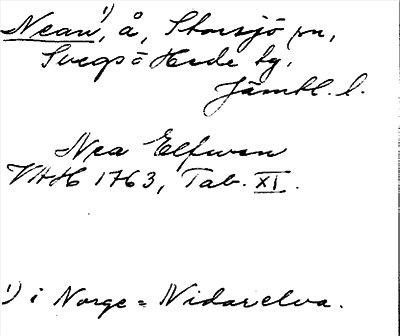 Nean¹⁾, å, Storsjö sn,
Svegs o Hede tg,
Jämtl. l.
Nea Elfwen
VAH 1763, Tab. XI.
¹⁾ i Norge = Nidarelva.